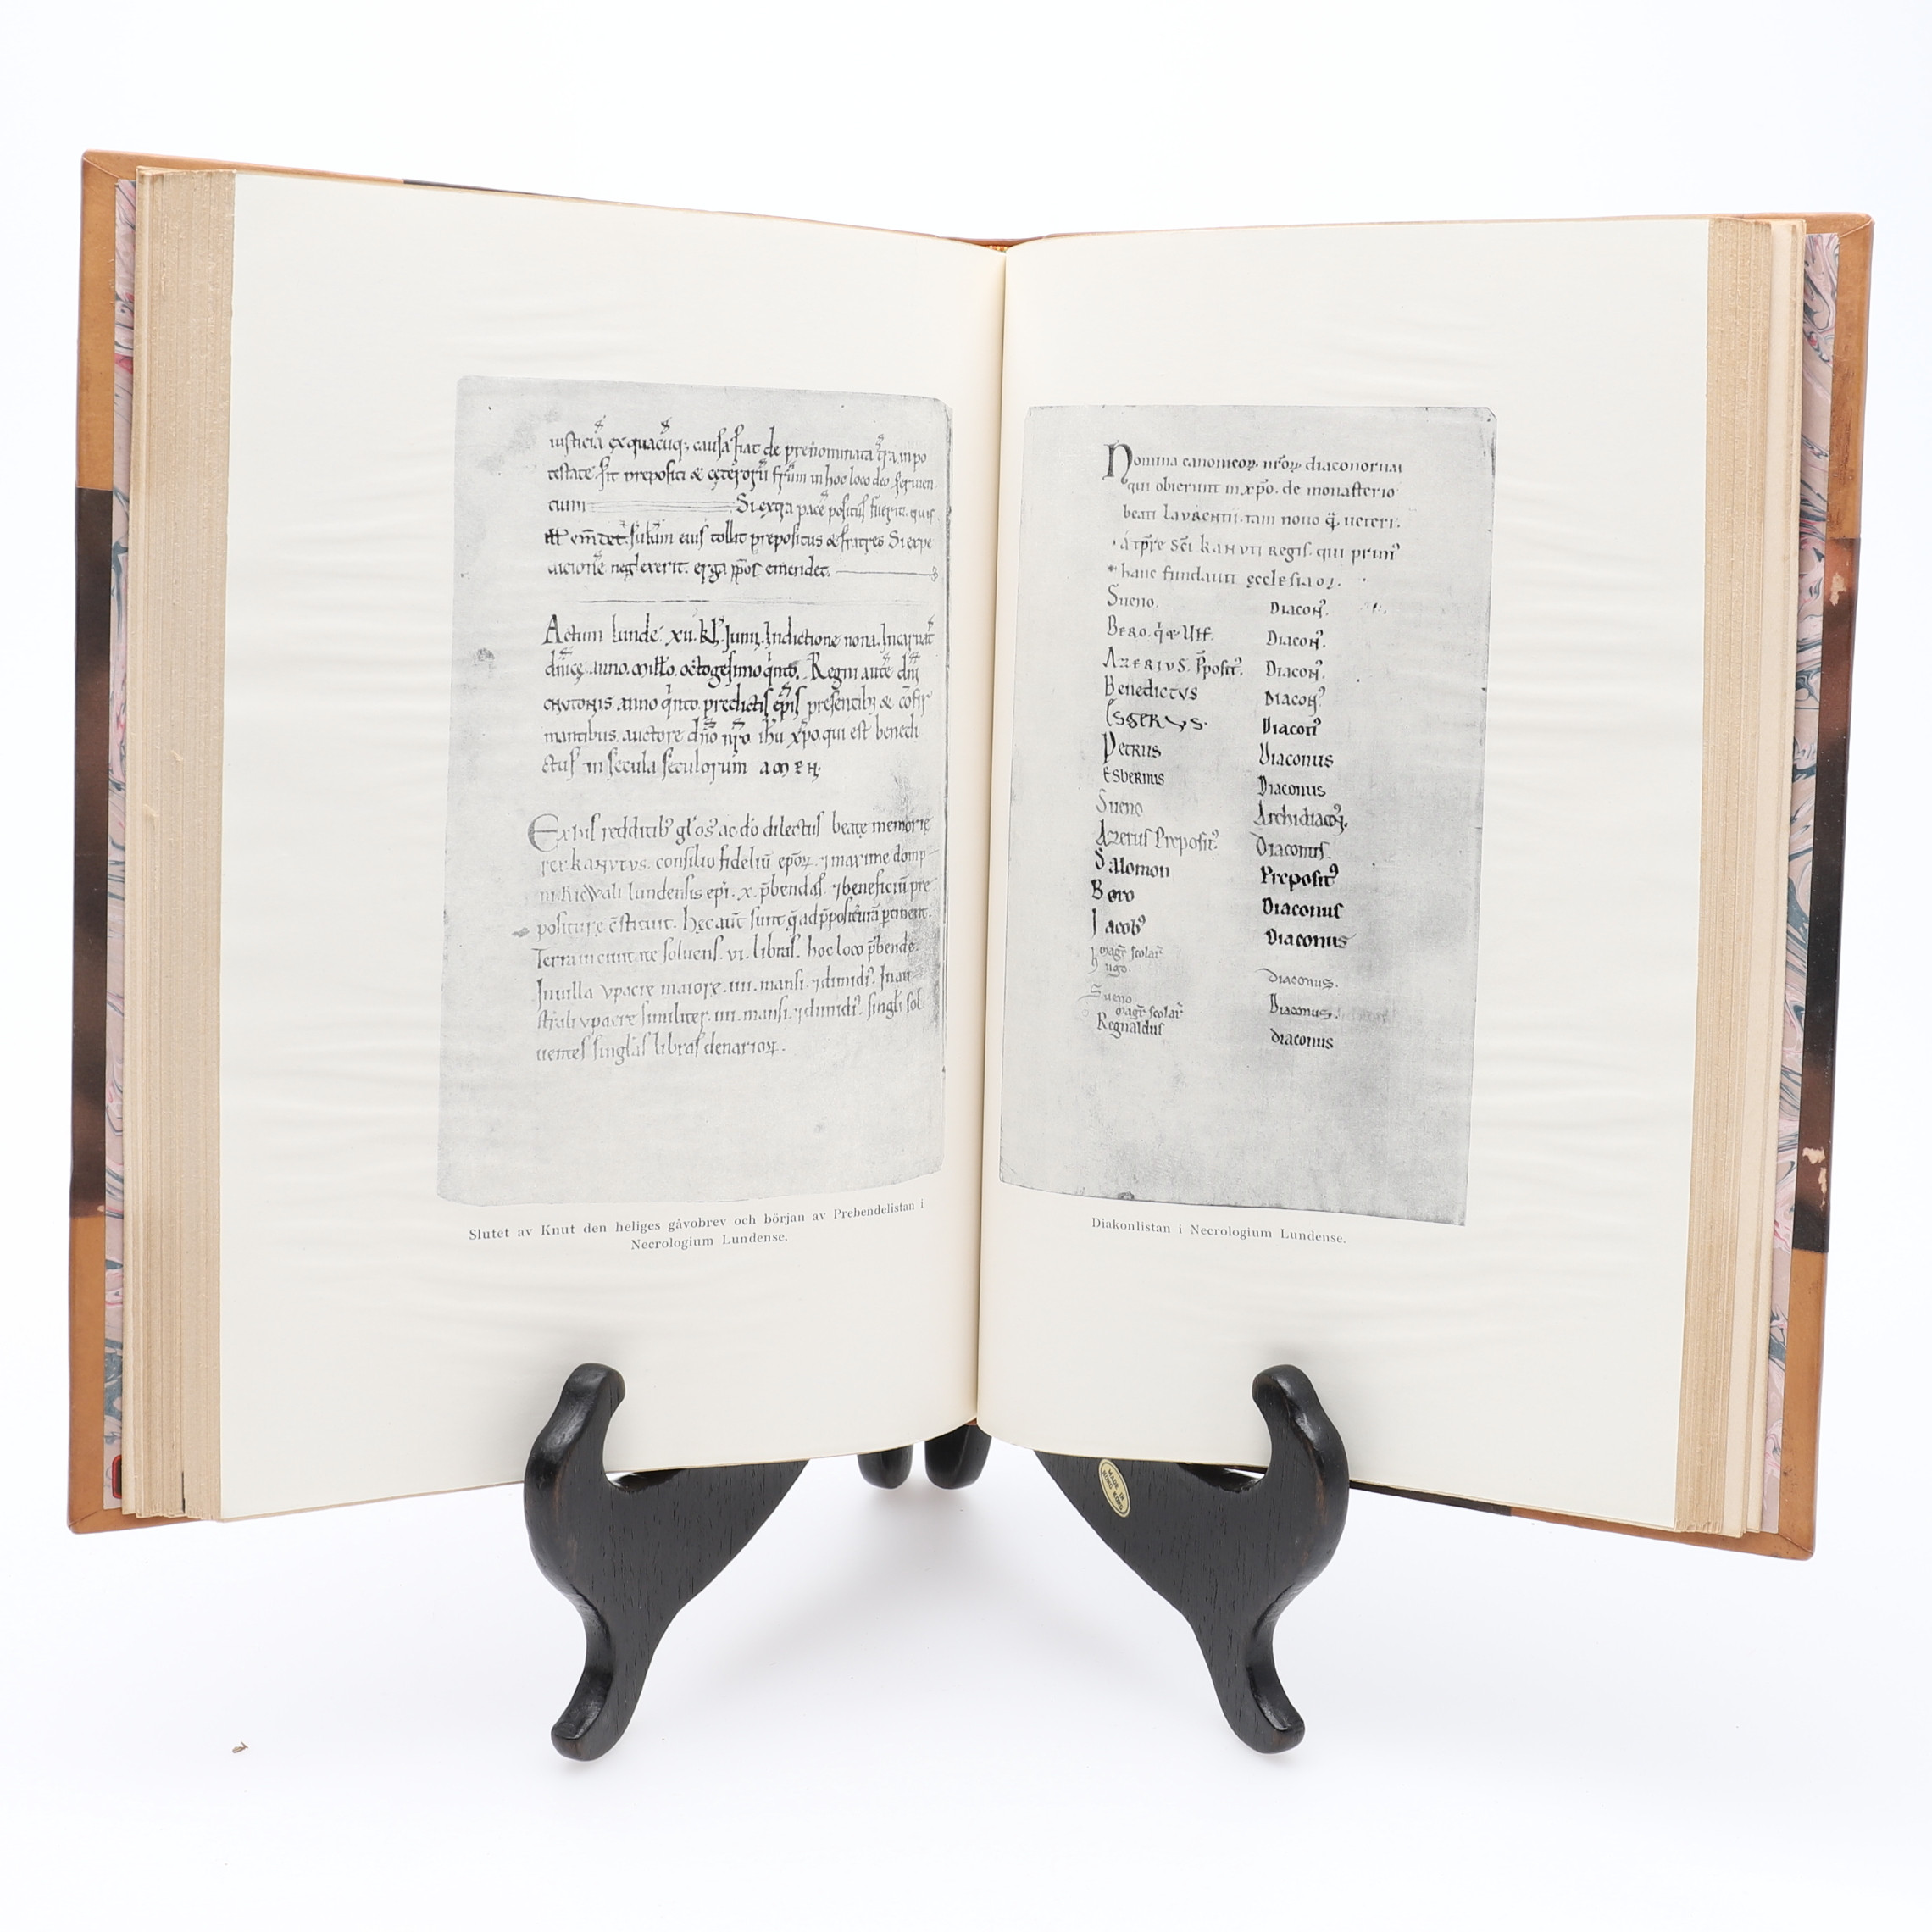 iusticia ex quacūq; causa fiat de prenominata tr̄a, in po
testate sit prepositi & ceterorū fr̄um in hoc loco deo seruien
cium Si extra pacē positus fuerit. quis
emdet. sūbam eius tollit prepositus & fratres Si expe
dicionē neglexerit. erga ep̄os emendet.
Actum lunde. xii. kl. Junii. Indictione nona. Incarnat
dn̄icę. anno. mill̄o. octogesimo q̇nto. Regni autē dn̄i
cnvtonis. anno q̇nto. predictis ep̄is presentib; & cōfir
mantibus. auctore dn̄o nr̄o ihu xp̄o qui est benedi
ctus in secula seculorum amen;
Ex his redditib; gl̄os' ac dō dilectus beatę memorię
rex kanvtvs. consilio fideliū ep̄oꝝ. ⁊ maxime domp
ni Ricwali lundensis ep̄i. x. p̄bendas. ⁊ beneficiū pre
positurę c̄stituit. hęc aūt sunt q̄ ad p̄positurā ptinent.
Terram cunt te soluens. vi. libras. hoc loco p̄bende.
In uilla vpacre maiore. iiii. mansi. ⁊ dimidi'. In au
strali vpacre similiter. iiii. mansi. ⁊ dimidi'. singli sol
uentes singlas libras denarioꝝ.
Slutet av Knut den heliges gåvobrev och början av Prebendelistan i
Necrologium Lundense.
Nomina canonicoꝝ. nr̄oꝝ. diaconorum
qui obierunt in xp̄o. de monasterio
beati lavrentii. tam nouo q̄. ueteri.
a tp̄re sc̄i kanvti regis. qui prim'
hanc fundauit ecclesiam.
Sueno. Diacon'.
Bero. q̄ & Ulf. Diacon'.
Azerivs. Pposit'. Diacon'.
Benedictvs Diacon'
Esgervs. Diacon'
Petrus Diaconus
Esbernus Diaconus
Sueno Archidiacon'.
Azerus Preposit' Diaconus.
Salomon Preposit'
Bero Diaconus
Jacob' Diaconus
magr̄ scolar̄
hugo. Diaconus.
Sueno Diaconus.
magr̄ scolar̄
Regnaldus diaconus
Diakonlistan i Necrologium Lundense.
MADE IN
HONG KONG